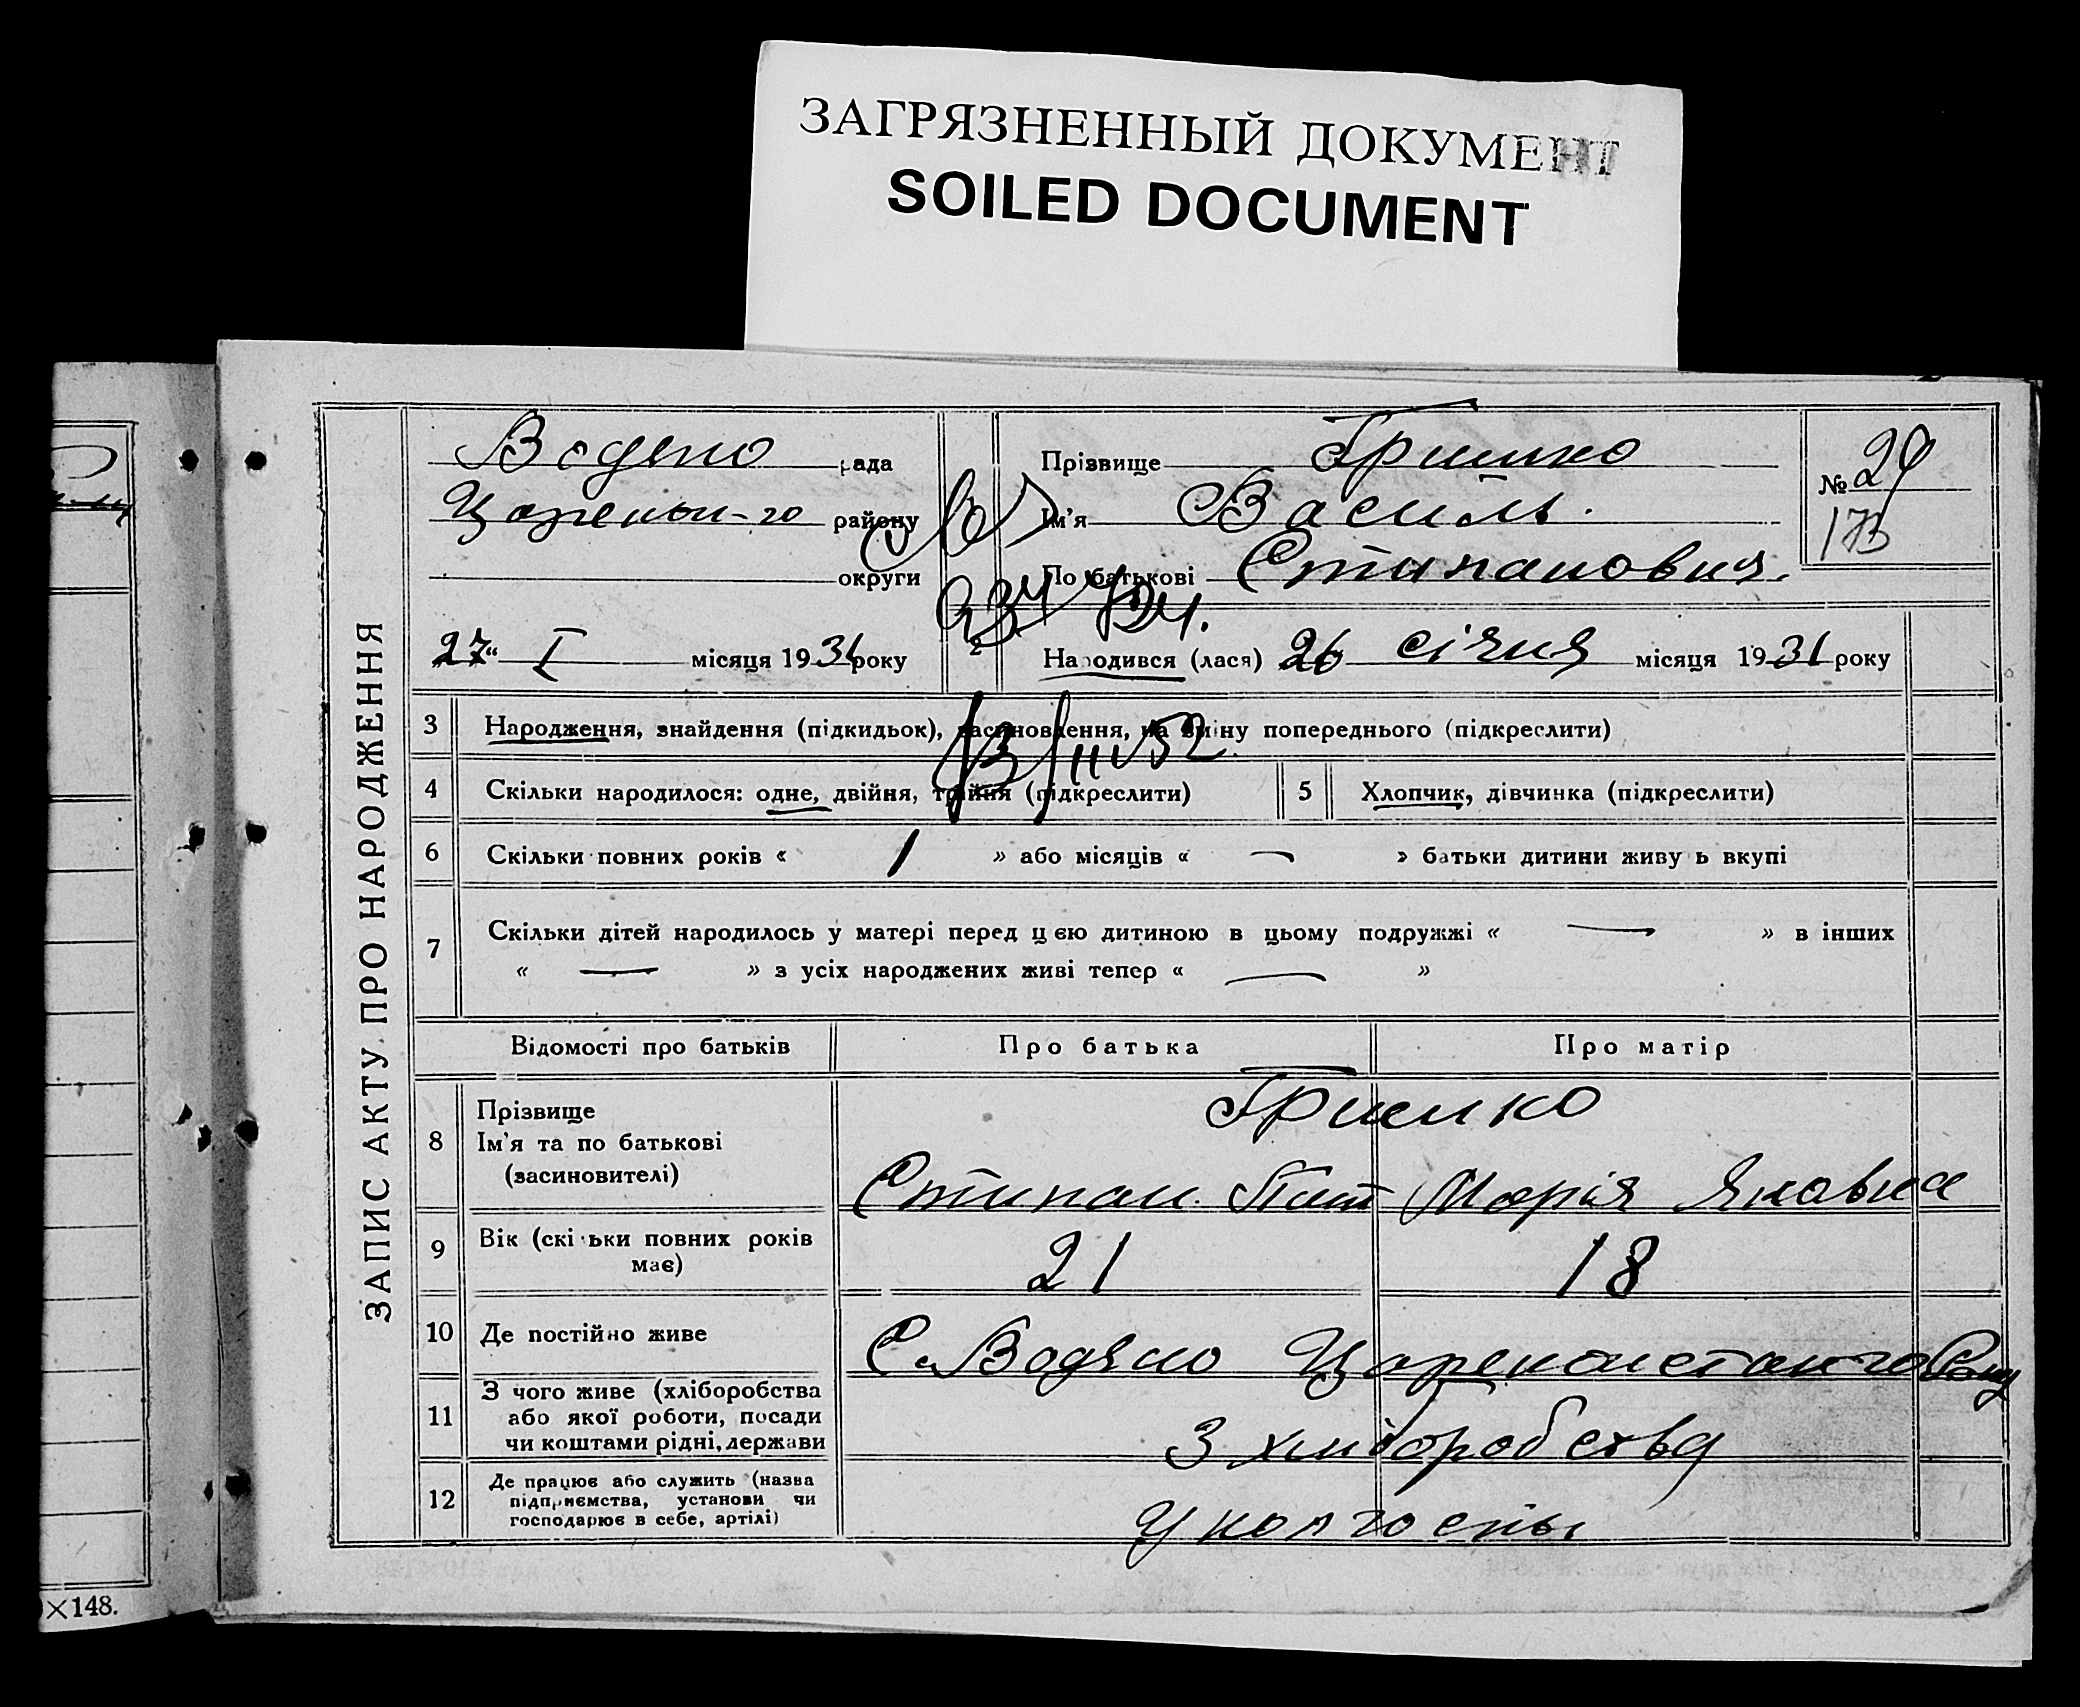 ЗАГРЯЗНЕННЫЙ ДОКУМЕНТ
SOILED DOCUMENT
ЗАПИС АКТУ ПРО НАРОДЖЕННЯ
Водяно рада
района
округи
27 " I місяця 1931 року
Прізвище Гришко
Ім'я Василь.
По батькові Стипанович.
№ 29
173
2
Народився (лася) 26 січня місяця 1931 року
3 Народження, знайдення (підкидьок), засиновлення, на зміну попереднього (підкреслити)
13/II 52
4 Скільки народилося: одне, двійня, трійня (підкреслити)
5 Хлопчик, дівчинка (підкреслити)
6 Скільки повних років « 1 » або місяців « — » батьки дитини живуть вкупі
7 Скільки дітей народилось у матері перед цєю дитиною в цьому подружжі « — » в інших
« — » з усіх народжених живі тепер « — »
Відомості про батьків Про батька Про матір
8 Прізвище
Ім'я та по батькові
(засиновителі)
Гришко
Стипан Марія Яковна
9 Вік (скільки повних років
має)
21 18
10 Де постійно живе
С. Водяно
11 З чого живе (хліборобства
або якої роботи, посади
чи коштами рідні, держави
З хліборобства
12 Де працює або служить (назва
підприємства, установи чи
господарює в себе, артілі)
У колгоспы
×148.